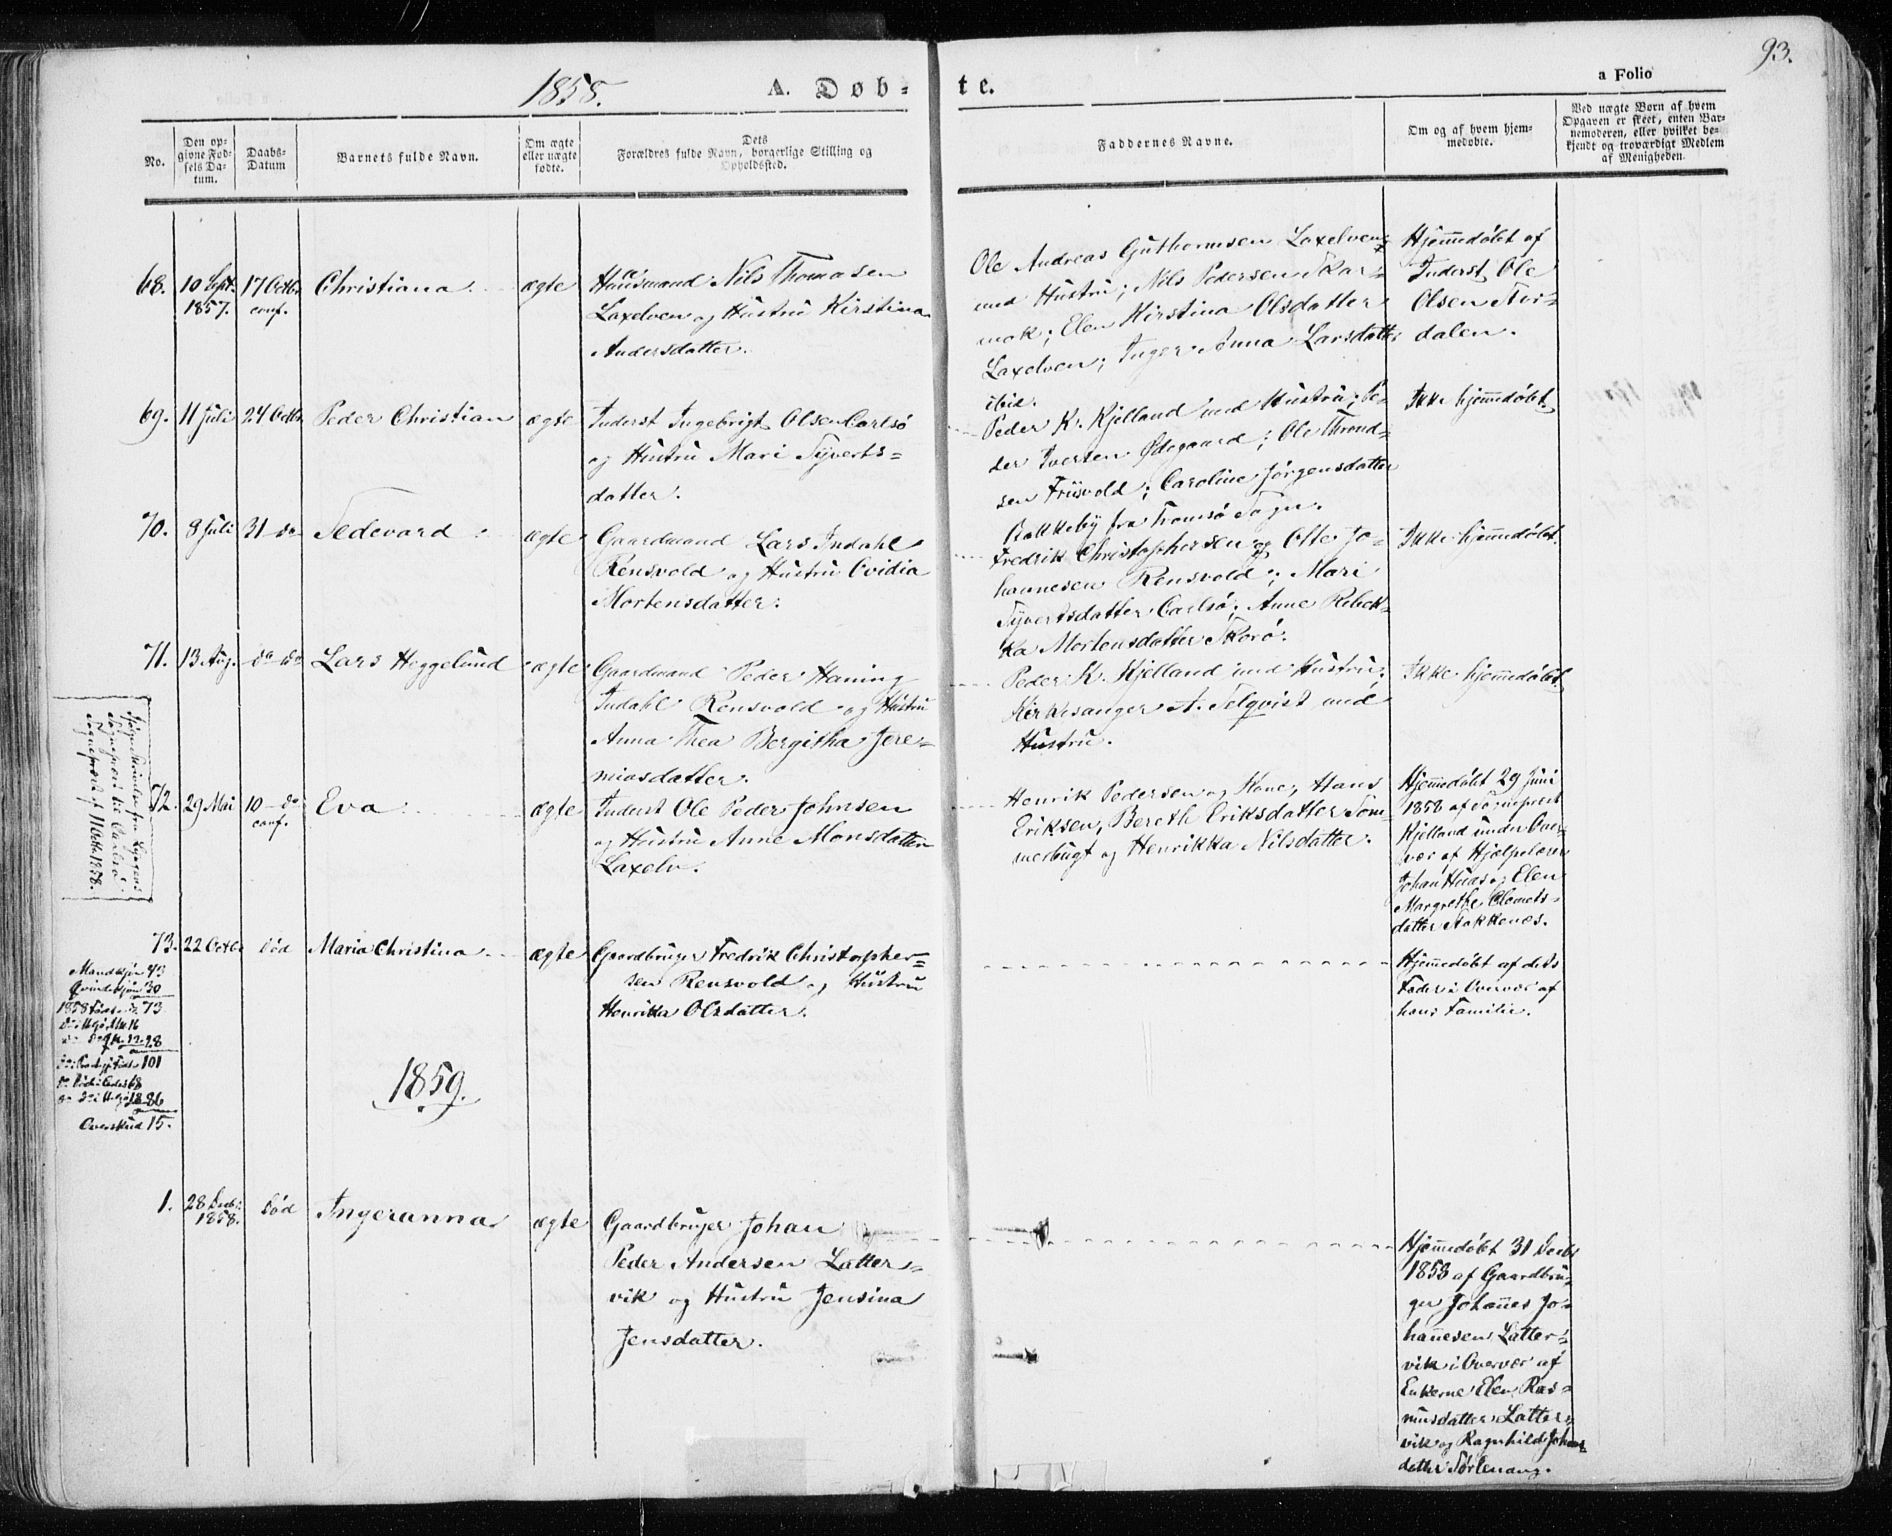 93.
1858.
A. Døb-
te.
a Folio
No.
Den op-
givne Fød-
sels Da-
tum.
Daabs-
Datum
Barnets fulde Navn.
Om ægte
eller uægte
fødte.
Dets
Forældres fulde Navn, borgerlige Stilling og
Opholdssted.
Faddernes Navne.
Om og af hvem hjem-
medøbte.
Ved uægte Børn af hvem
Opgaven er skeet, enten Bar-
nemoderen, eller hvilket be-
kjendt og troværdigt Medlem
af Menigheden.
68.
10 Sept.
1857.
17 Octbr
conf.
Christiana
ægte
Huusmand Nils Thomasen
Laxelven og Hustru Kirstina
Andersdatter.
Ole Andreas Guthormsen Laxelven
med Hustru; Nils Pedersen Skar-
mok; Elen Kirstina Olsdatter
Laxelven; Inger Anna Larsdatter
ibid.
Hjemmedøbt af
Inderst Ole
Olsen
dalen.
69.
11 Juli
24 Octbr
Peder Christian
ægte
Inderst Ingebrigt Olsen Carlsø
og Hustru Mari Syverts-
datter.
Peder K. Kjelland med Hustru; Pe-
der Iversen Ødegaard; Ole Thrond-
sen Friisvold; Caroline Jørgensdatter
Bakkeby fra Tromsø Sogn.
Ikke hjemmedøbt.
70.
8 Juli
31 do
Sedevard
ægte
Gaardmand Lars Indahl
Rensvold og Hustru Ovidia
Mortensdatter.
Fredrik Christophersen og Otte Jo-
hannesen Rensvold; Mari
Syvertsdatter Carlsø; Anne Rebek-
ka Mortensdatter Skorø.
Ikke hjemmedøbt.
71.
13 Aug.
do do
Lars Heggelund
ægte
Gaardmand Peder Haning
Indahl Rensvold og Hustru
Anna Thea Bergitha Jere-
miasdatter.
Peder K. Kjelland med Hustru;
Kirkesanger A. Selqvist med
Hustru.
Ikke hjemmedøbt.
til Carlsø
11 Octb. 1858.
72.
29 Mai
10 - do
conf.
Eva
ægte
Inderst Ole Peder Johnsen
og Hustru Anne Monsdatter
Laxelv.
Henrik Pedersen og Kone, Hans
Eriksen, Bereth Eriksdatter Som-
merbugt og Henrikka Nilsdatter.
Hjemmedøbt 29 Juni
1858 af Sognepræst
Kjelland under Over-
vær af Hjælpelærer
Johan Huas og Elen
Margrethe Clemets-
datter Aakkenæs.
73.
22 Octbr
død
Maria Christina
ægte
Gaardbruger Fredrik Christopher-
sen Rensvold og Hustru
Henrika Olsdatter.
Hjemmedøbt af dets
Fader i Overvær af
hans Familie.
Mandkjøn 43
Qvindekjøn 30
1858 Fødte 73
16
12 - 28
101
68
18 - 86
Overskud 15.
1859.
1.
28 Decbr
1858.
død
Ingeranna
ægte
Gaardbruger Johan
Peder Andersen Latter-
vik og Hustru Jensina
Jensdatter.
Hjemmedøbt 31 Decbr
1858 af Gaardbru-
ger Johannes Jo-
hannesen Latter-
vik i Overvær af
Enkerne Elen Ras-
musdatter Latter-
vik og Ragnhild Johans-
datter Sørlenang.